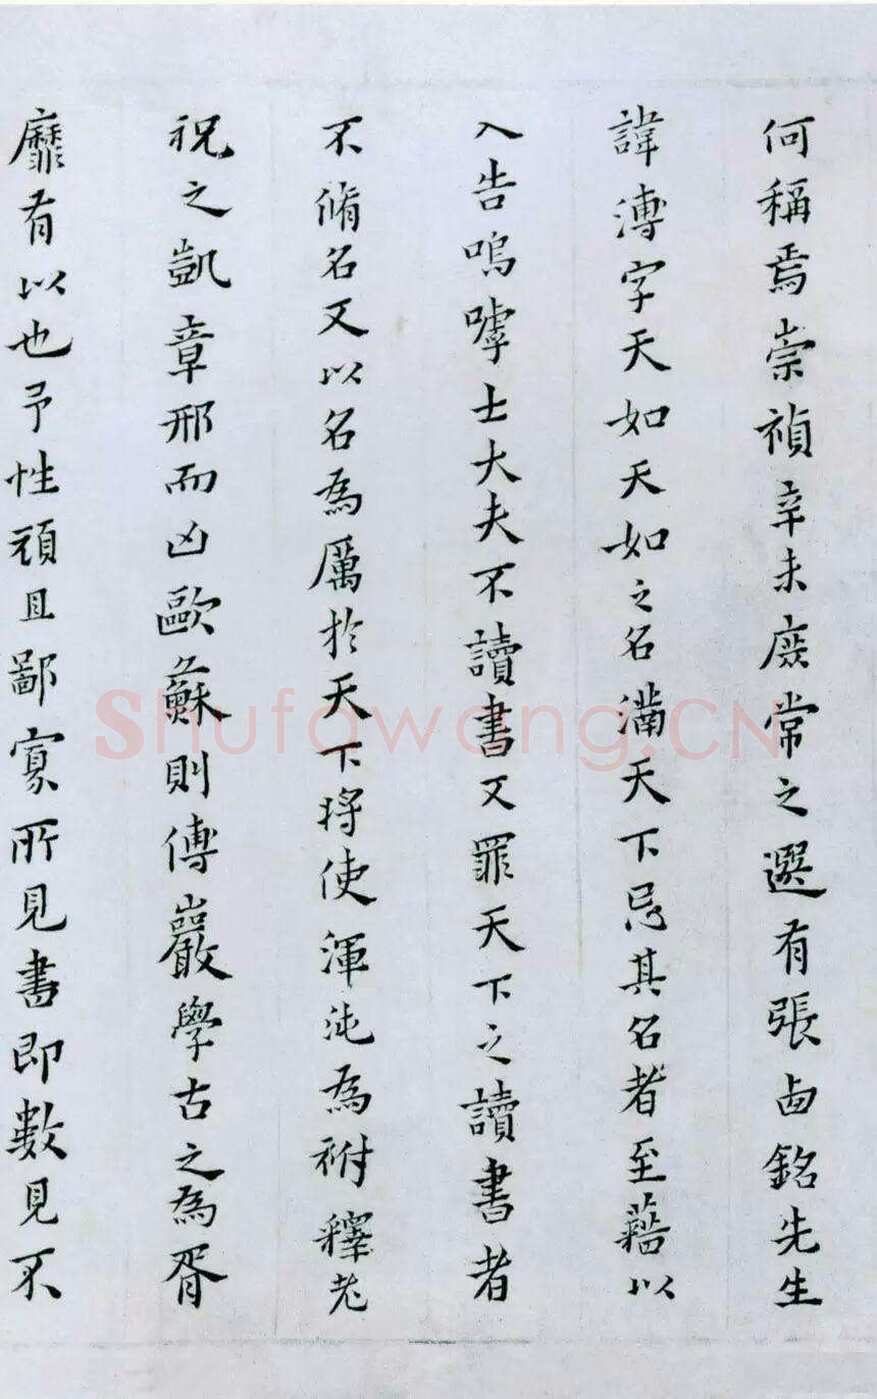 何稱焉崇禎辛未庶常之選有張西銘先生
諱溥字天如天如之名滿天下忌其名者至藉以
入告嗚嘑士大夫不讀書又罪天下之讀書者
不脩名又以名為厲於天下將使渾沌為祔釋老
祝之凱章邢而凶歐蘇則傅巖學古之為胥
靡有以也予性頑且鄙寡所見書即數見不
Shufawang.CN